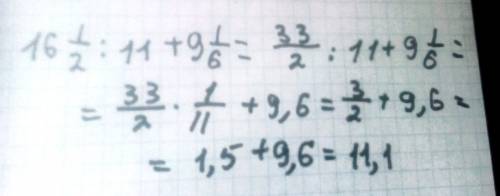 16 1/2 : 11 + 9 1/6 = 33/2 : 11 + 9 1/6 =
= 33/2 · 1/11 + 9,6 = 3/2 + 9,6 =
= 1,5 + 9,6 = 11,1